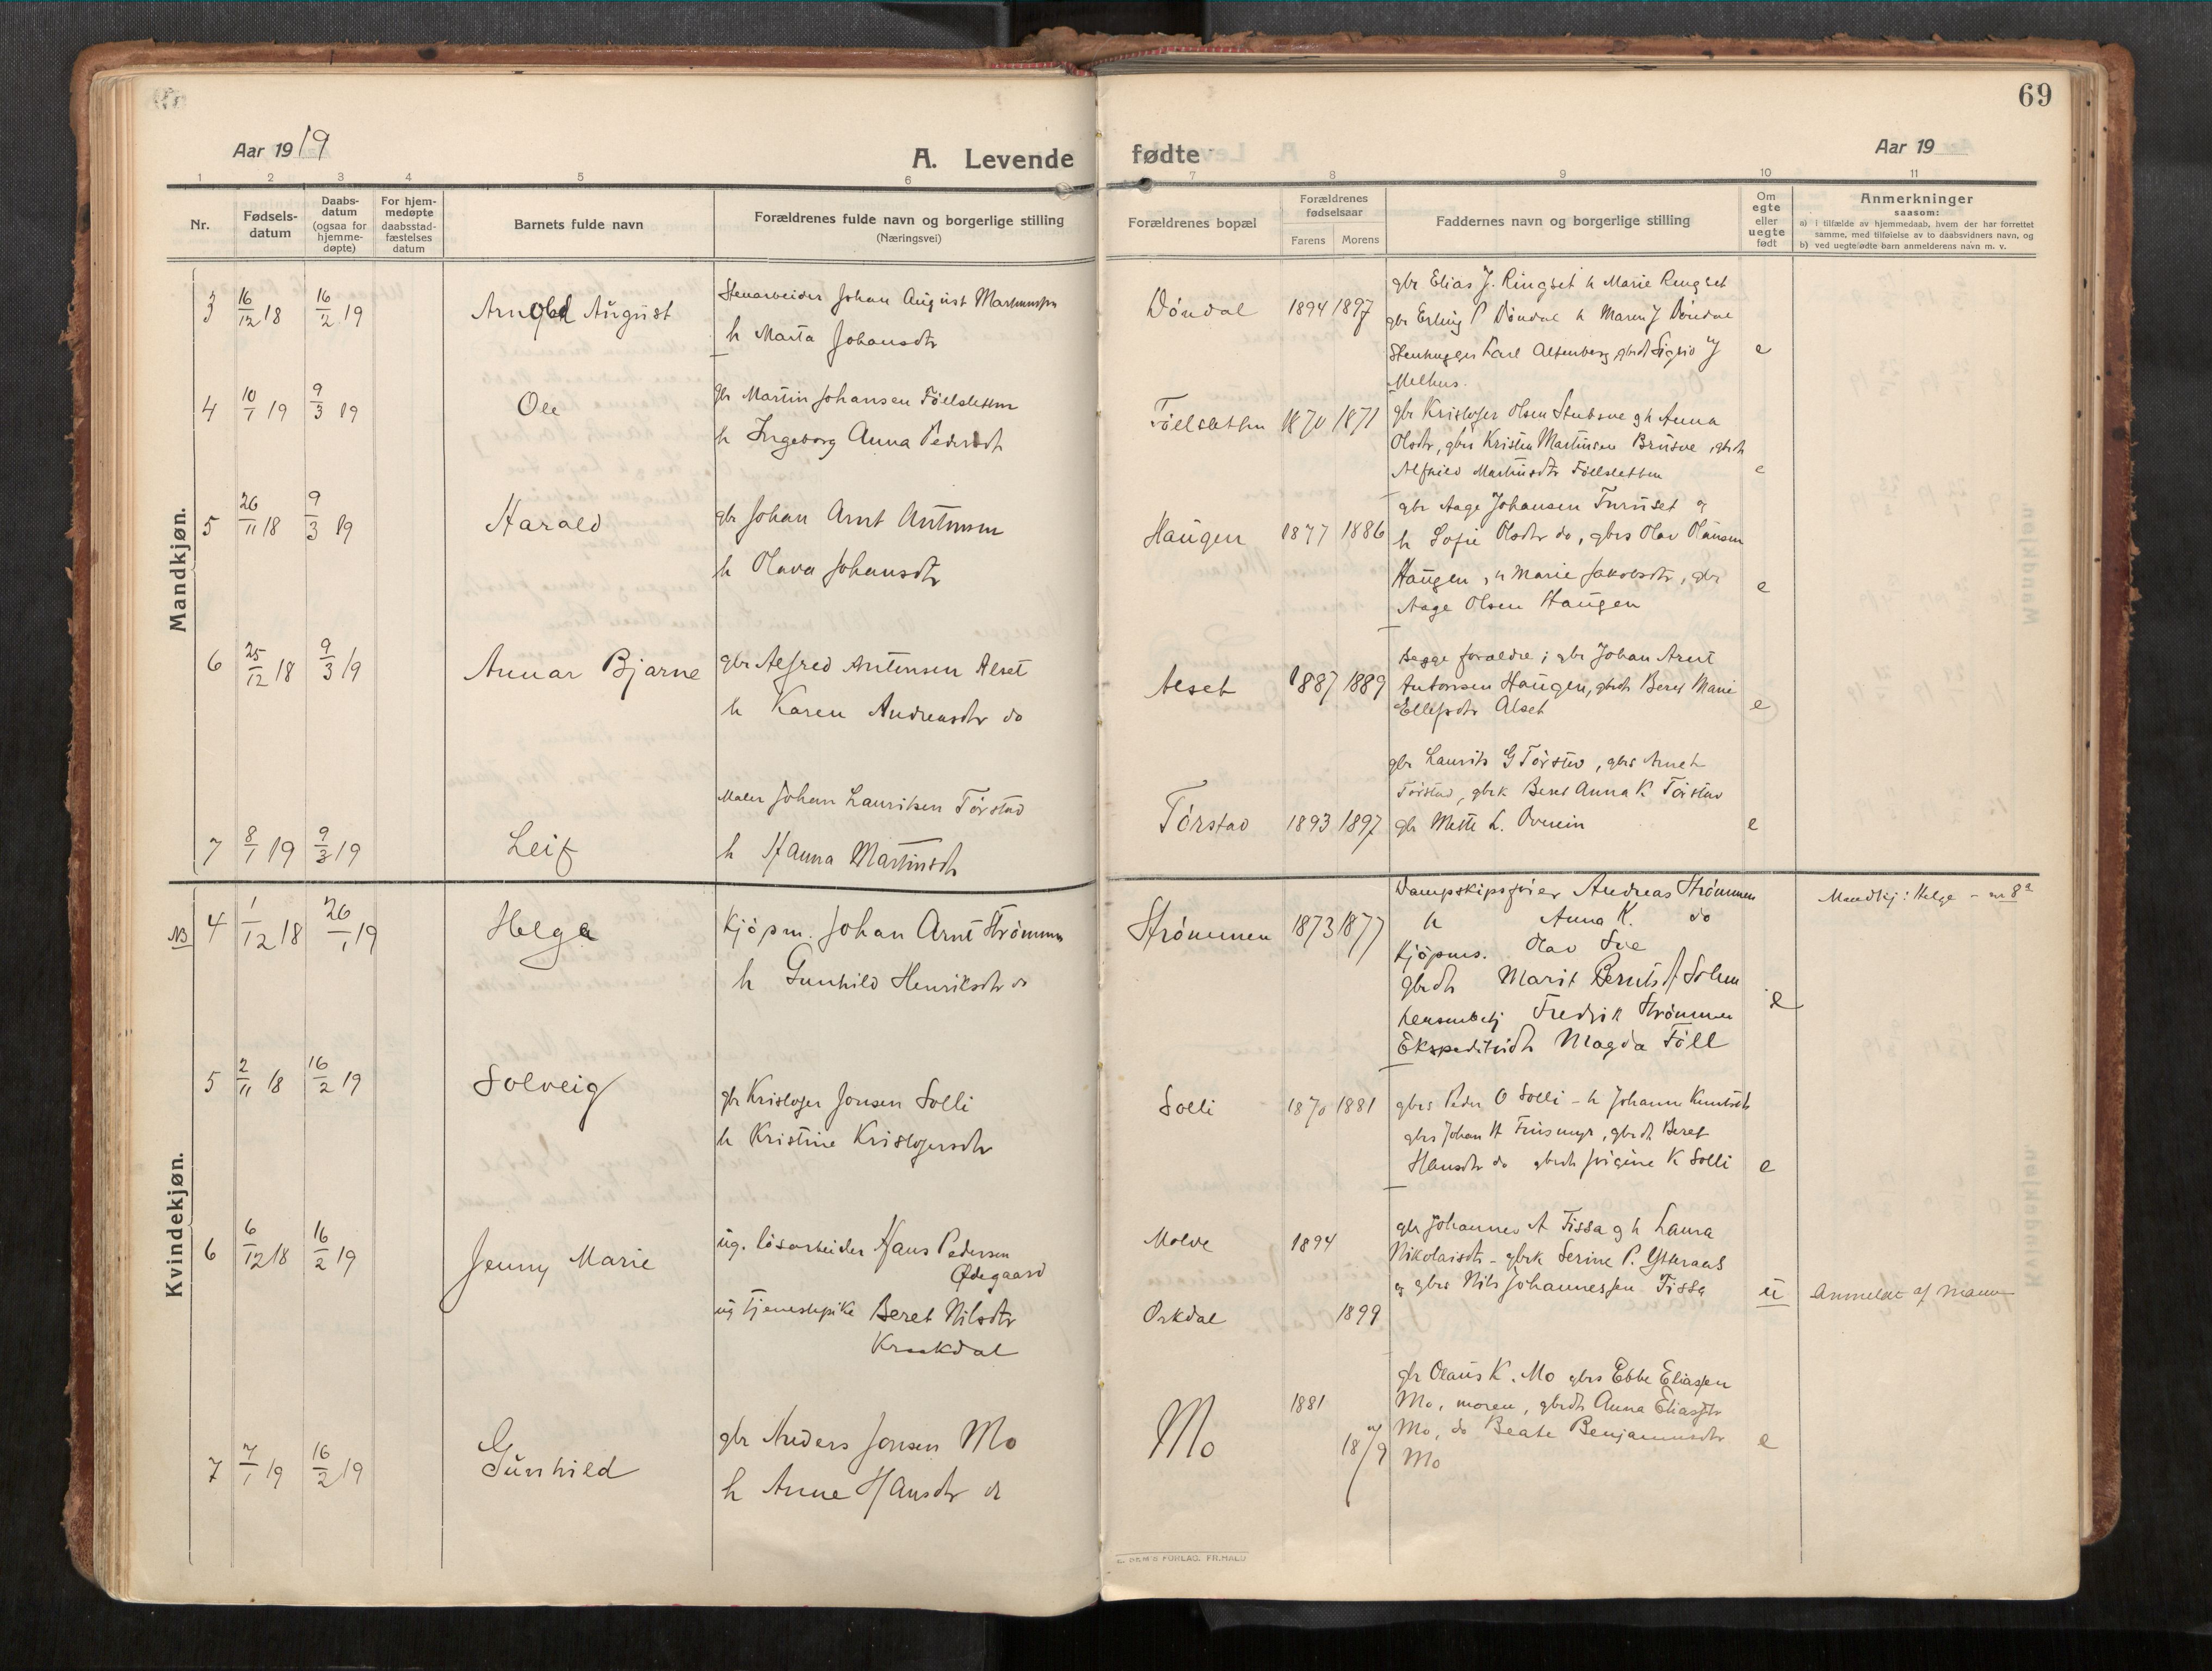 69
Aar 1919
A. Levende fødte
Aar 19
1 2 3 4 5 6 7 8 9 10 11
Nr.
Fødsels-
datum
Daabs-
datum
(ogsaa for
hjemme-
døpte)
For hjem-
medøpte
daabsstad-
fæstelses
datum
Barnets fulde navn
Forældrenes fulde navn og borgerlige stilling
(Næringsvei)
Forældrenes bopæl
Forældrenes
fødselsaar
Farens Morens
Faddernes navn og borgerlige stilling
Om
egte
eller
uegte
født
Anmerkninger
saasom:
a) i tilfælde av hjemmedaab, hvem der har forrettet
samme, med tilføielse av to daabsvidners navn, og
b) ved uegtefødte barn anmelderens navn m. v.
Mandkjøn.
3 16/12 18 16/2 19 Arnold August
Stenarbeider Johan August
h Marta Johansdtr
1894 1897
gbr Elias J. Ringset h Marie Ringset
gbr Erling P h Maren J
Stenhugger Karl Altenberg, gbrdt Sigrid J
Melhus.
e
4 10/1 19 9/3 19 Ole
gbr Martin Johansen
h Ingeborg Anna Pedersdt
1870 1871
gbr Kristofer Olsen g h Anna
Olsdtr, gbrs Kristen Martinsen
e
5 26/11 18 9/3 19 Harald
gbr Johan Arnt Antonsen
h Olava Johansdtr
Haugen 1877 1886
gbr Aage Johansen Furuset og
h Sofie Olsdtr do, gbrs Olav Olausen
Haugen, h Marie Jakobsdtr, gbr
Aage Olsen Haugen
e
6 25/12 18 9/3 19 Annar Bjarne
gbr Alfred Antonsen Alset
h Karen Andreasdtr do
Alset 1887 1889
Begge forældre; gbr Johan Arnt
Antonsen Haugen, gbrdt Beret Marie
Ellefsdtr Alset
e
7 8/1 19 9/3 19 Leif
Maler Johan Lauritsen Tørstad
h Hanna Martinsdt
Tørstad 1893 1897
gbr Laurits G Tørstad, gbrs Arnet
Tørstad, gbrk Beret Anna K Tørstad
gbr Mette L.
e
Kvindekjøn.
NB 4 1/12 18 26/1 19 Helga
Kjøpm. Johan Arnt Strømmen
h Gunhild Henriksdtr do
Strømmen 1873 1877
Dampskipsfører Andreas Strømmen
h Anna K. do
Kjøpms. Olav
gbrdt Marit
Fredrik Strømmen
Magda Föll
e
Mandkj: Helge – nr 8a
5 2/11 18 16/2 19 Solveig
gbr Kristofer Jonsen Solli
h Kristine Kristofersdtr
Solli 1870 1881
gbrs Peder O Solli – h Johanna
gbrs Johan H, gbrdt Beret
Hansdtr do gbrdt K Solli
e
6 6/12 18 16/2 19 Jenny Marie
ug. løsarbeider Hans Pedersen
Ødegaard
ug tjenestepike Beret Nilsdtr
Kraakdal
Molde 1894
Orkdal 1899
gbr Johannes A Fissa g h Laura
Nikolaisdtr – gbrk Serine P.
og gbrs Nils Johannessen Fissa
u
Anmeldt af
7 7/1 19 16/2 19 Gunhild
gbr Anders Jonsen Mo
h Anne Hansdtr do
Mo 1881
gbr Olaus K. Mo gbrs Ebbe Eliassen
Mo, moren, gbrdt Anna Eliasdtr
Mo, do Beate Benjaminsdtr
Mo
e